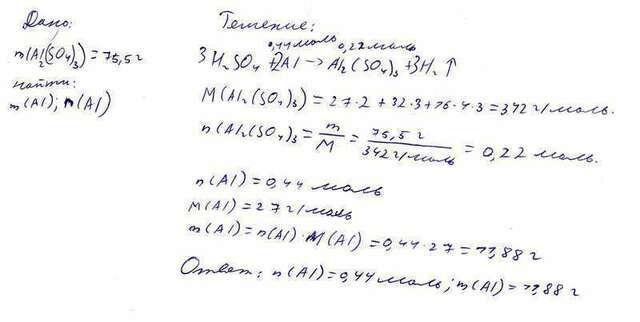 Дано:
m(Al2(SO4)3) = 75,5 г
найти:
m(Al); n(Al)
Решение:
0,44 моль 0,22 моль
3H2SO4 + 2Al → Al2(SO4)3 + 3H2 ↑
M(Al2(SO4)3) = 27·2 + 32·3 + 16·4·3 = 342 г/моль.
n(Al2(SO4)3 = m/M = 75,5 г/342 г/моль = 0,22 моль.
n(Al) = 0,44 моль
M(Al) = 27 г/моль
m(Al) = n(Al)·M(Al) = 0,44·27 = 11,88 г
Ответ: n(Al) = 0,44 моль; m(Al) = 11,88 г